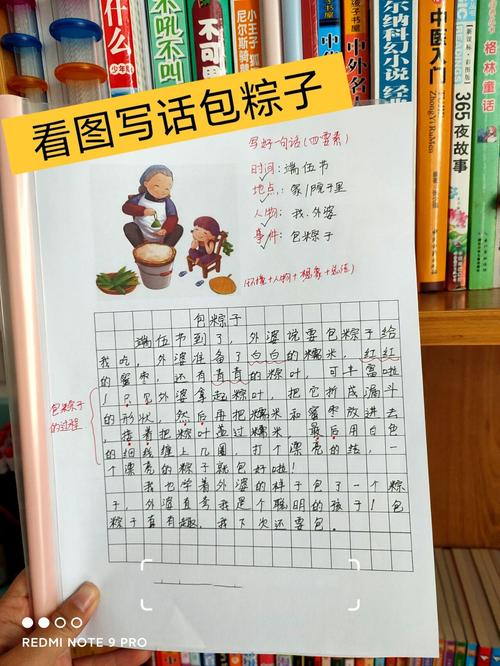 什么
少年阅
不吼不叫
不可
小王子
尼尔斯骑鹅
中外
孩子
中外名
尔纳科幻小说 经典
中医入门
ZhongYi RuMen
新课标·彩图版
365夜故事
格林童话
看图写话包粽子
写好一句话(四要素)
时间:端伍节
地点:家/院子里
人物:我、外婆
事件:包粽子
(环境+人物+想象+总结)
包粽子
端伍节到了,外婆说要包粽子给
我吃,外婆准备了白白的糯米,红红
的蜜枣,还有青青的粽叶,可丰富啦
!只见外婆拿起粽叶,把它折成漏斗
的形状,然后再把糯米和蜜枣放进去
,接着把粽叶盖过糯米,最后用白色
的细线缠上几圈,打个漂亮的结,一
个漂亮的粽子就包好啦!
包粽子的过程
我也学着外婆的样子包了一个粽
子,外婆直夸我是个聪明的孩子!包
粽子真有趣,我下次还要包。
REDMI NOTE 9 PRO